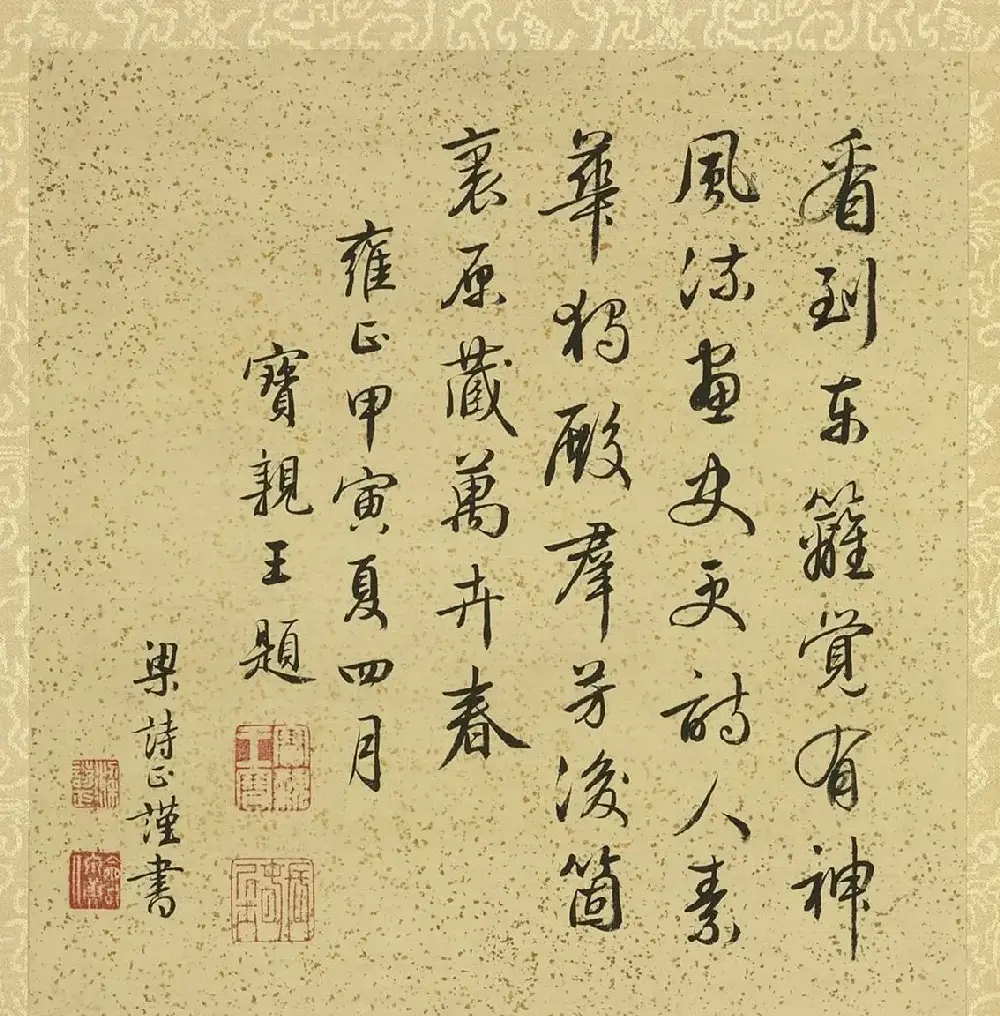 看到东籬覺有神
風流畫史更詩人素
華獨殿羣芳後箇
裏原藏萬卉春
雍正甲寅夏四月
寶親王題
梁詩正謹書